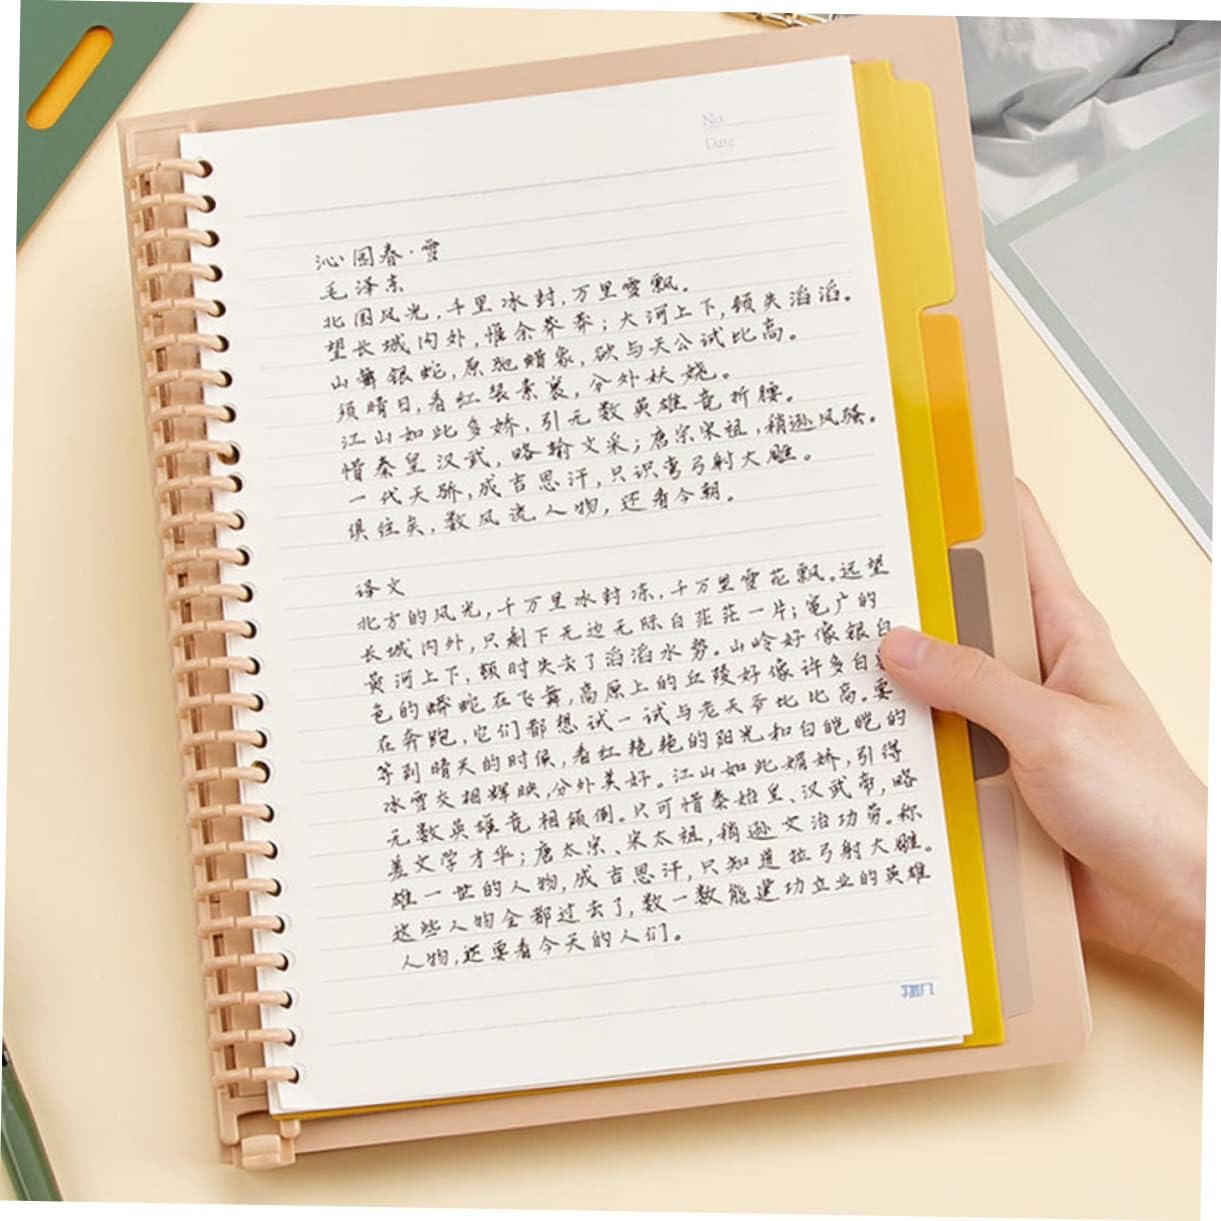 No.
Date
沁园春·雪
毛泽东
北国风光,千里冰封,万里雪飘。
望长城内外,惟余莽莽;大河上下,顿失滔滔。
山舞银蛇,原驰蜡象,欲与天公试比高。
须晴日,看红装素裹,分外妖娆。
江山如此多娇,引无数英雄竞折腰。
惜秦皇汉武,略输文采;唐宗宋祖,稍逊风骚。
一代天骄,成吉思汗,只识弯弓射大雕。
俱往矣,数风流人物,还看今朝。
译文
北方的风光,千万里冰封冻,千万里雪花飘。远望
长城内外,只剩下无边无际白茫茫一片;宽广的
黄河上下,顿时失去了滔滔水势。山岭好像银白
色的蟒蛇在飞舞,高原上的丘陵好像许多白
在奔跑,它们都想试一试与老天爷比比高。要
等到晴天的时候,看红艳艳的阳光和白皑皑的
冰雪交相辉映,分外美好。江山如此媚娇,引得
无数英雄竞相倾倒。只可惜秦始皇、汉武帝,略
差文学才华;唐太宗、宋太祖,稍逊文治功劳。称
雄一世的人物,成吉思汗,只知道拉弓射大雕。
这些人物全都过去了,数一数能建功立业的英雄
人物,还要看今天的人们。